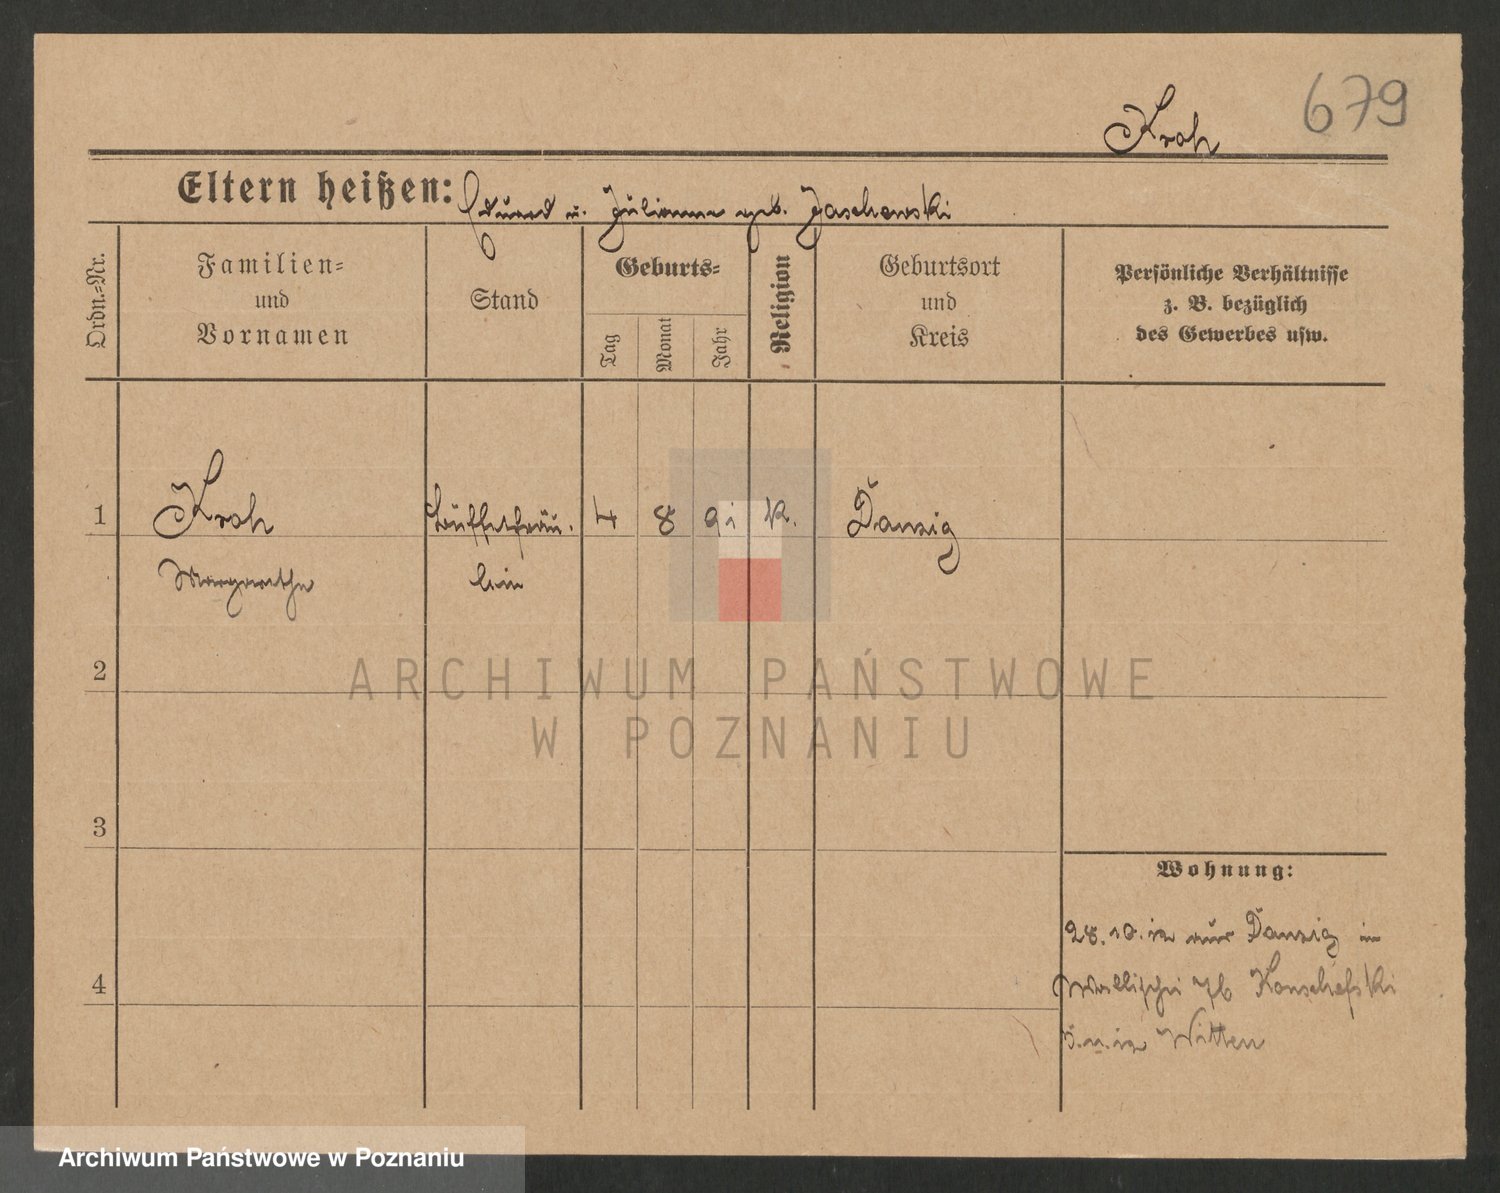 679
Kroh
Eltern heißen: Eduard u. Julianna geb. Jaschewski
Ordn.-Nr.
Familien-
und
Vornamen
Stand
Geburts-
Tag
Monat
Jahr
Religion
Geburtsort
und
Kreis
Persönliche Verhältnisse
z. B. bezüglich
des Gewerbes usw.
1 Kroh Büffetfräu- 4 8 91 k. Danzig
Margarethe lein
2
3
4
Wohnung:
28.10.12 aus Danzig
Wallischei 76
5.11.12 Witten
ARCHIWUM PAŃSTWOWE
W POZNANIU
Archiwum Państwowe w Poznaniu